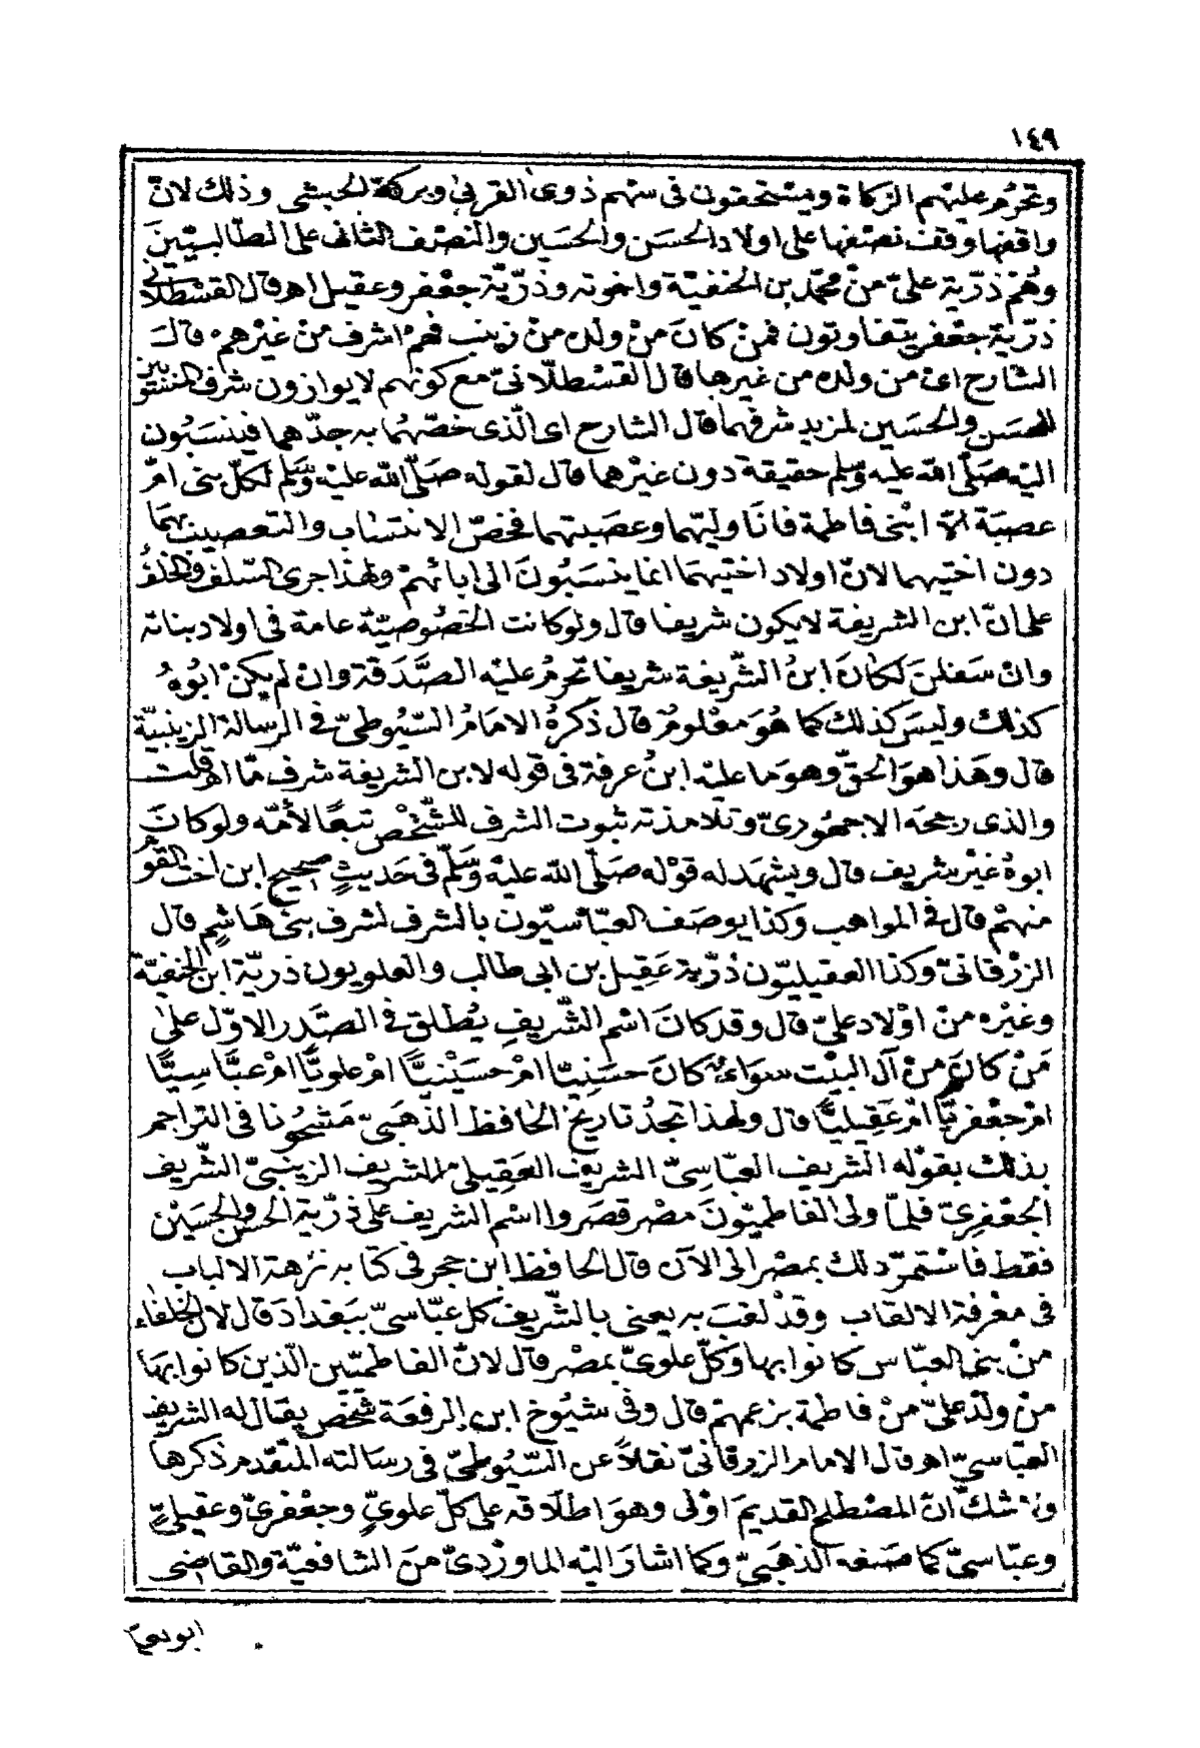 ١٤٩
وتحرم عليهم الزكاة ويستحقون فى سهم ذوى القربى وبركة الحبشى وذلك لانّ
واقفها وقف نصفها على اولاد الحسن والحسين والنصف الثانى على الطالبيّينَ
وهُمْ ذرّية علىّ منْ محمّد بن الحنفيّة واخوته وذرّيّة جعْفر وعقيل اهـ قال القسْطلّانى
ذرّية جعْفر يتفاوتون فمنْ كانَ منْ ولده منْ زينب فهمْ اشرف منْ غيْرهمْ قالَ
الشارح اىْ من ولده من غيرها قال القسْطلّانىّ مع كونهم لا يوازون شرف المنتسبين
للحسن والحسين لمزيد شرفهما قال الشارح اى الّذى خصّهُما به جدّهما فينسَبُون
اليْه صَلّى الله عليه وسلم حقيقة دون غيْرهما قال لقوله صَلّى الله عليْه وسَلم لكلّ بنى امّ
عصبَة الا ابْنى فاطمة فانَا وليّهما وعصَبتهما فخصّ الانتسَاب والتعصيب بهمَا
دون اختيهما لانّ اولاد اختيهمَا انما ينسَبُونَ الى ابائهمْ ولهذا جرى السّلف والخلفُ
على انّ ابن الشريفة لا يكون شريفا قال ولو كانت الخصُوصيّة عامة فى اولاد بناته
وانْ سَفلنَ لكانَ ابنُ الشّريفة شريفا تحرمُ عليْه الصَّدَقة وانْ لم يكنْ ابُوهُ
كذلك وليسَ كذلك كما هُوَ معْلومٌ قال ذكرَهُ الامامُ السّيُوطىّ فى الرسالة الزينبيّة
قال وهَذا هوَ الحقّ وهوَ ما عليْه ابنُ عرفة فى قوله لابن الشريفة شرف مّا اهـ قلت
والذى رجحَه الاجهُورىّ وتلامذته ثبوت الشرف للشّخْص تبعًا لأمّه ولو كانَ
ابوهُ غيْر شريف قال ويشهَد له قوْله صَلّى الله عليْه وسَلّم فى حَديثٍ صحيح ابن اخت القوْم
منهمْ قال فى المواهب وكذا يوصَف العبّاسيّون بالشرف لشرف بنى هَاشِم قال
الزرْقانىّ وكذا العقيليّون ذُرّية عَقِيل بن ابى طالب والعلويون ذريّة ابن الحنفيّة
وغيْره منْ اوْلاد علىّ قال وقد كانَ اسْم الشّريفِ يُطلق فى الصَّدر الاوّل علىٰ
مَنْ كانَ منْ آل البيْت سوَاءٌ كانَ حسَنِيّا امْ حسَيْنيًّا امْ علويًّا امْ عبَّاسِيًّا
امْ جعْفريًّا امْ عَقِيليًّا قال ولهذا تجدُ تاريخ الحافظ الذّهَبىّ مَشحُونا فى التراجم
بذلك بقوْله الشريف العبّاسىّ الشريف العَقِيلى الشريف الزينبىّ الشّريف
الجعْفرىّ فلمّا ولى الفاطميّونَ مصْر قصَروا اسْم الشريف على ذرّية الحسَن والحسَيْن
فقط فاسْتمرّ ذلك بمصْر الى الآن قال الحافظ ابن حجر فى كتابه نزهة الالباب
فى معْرفة الالقاب وقدْ لقبَ به يعنى بالشّريف كل عبّاسىّ ببَغدادَ قال لان الخلفاء
منْ بنى العبّاس كانوا بها وكلّ علوىّ بمصْر قال لانّ الفاطميّين الّذين كانوا بهَا
منْ ولدْ علىّ منْ فاطمة بزعمهمْ قال وفى شيُوخ ابن الرفعَة شخْص يقال له الشريف
العبّاسىّ اهـ قال الامام الزرقانىّ نقلاً عن السّيُوطىّ فى رسَالته المتقدم ذكرها
ولا شكّ انّ المصْطلح القديمَ اوْلى وهوَ اطلاقه على كلّ علوىّ وجعْفرىّ وعقيلىّ
وعبّاسىّ كما صَنعه الذهبَىّ وكما اشارَ اليْه الماوَرْدىّ منَ الشافعيّة والقاضى
ابو يعلى